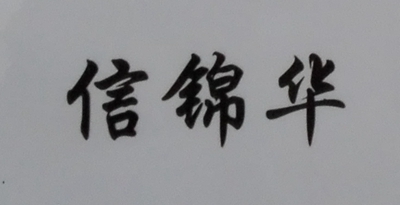 信锦华